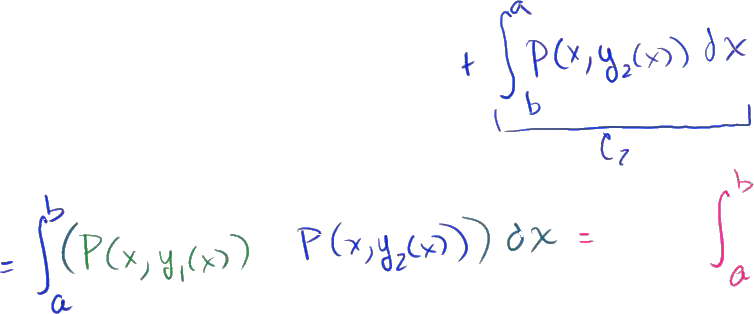 + ∫_b^a P(x, y₂(x)) dx
C₂
= ∫_a^b (P(x, y₁(x)) P(x, y₂(x))) dx = ∫_a^b